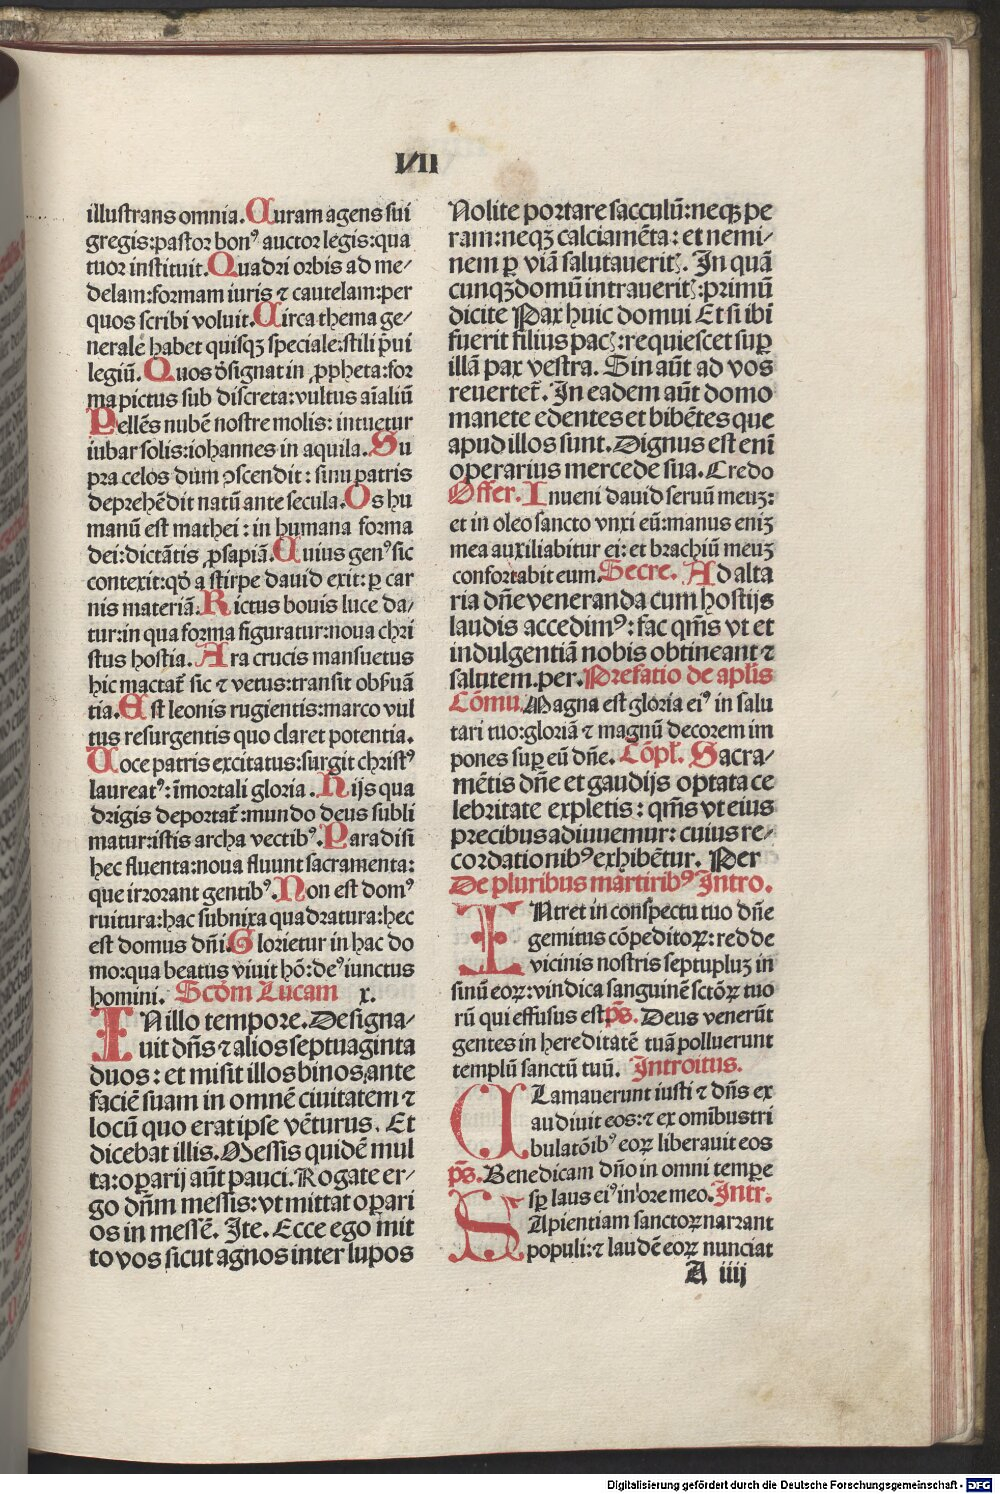 VII
illustrans omnia. Curam agens sui
gregis:pastor bonꝰ auctor legis:qua
tuor instituit. Quadri orbis ad me⸗
delam:formam iuris ⁊ cautelam:per
quos scribi voluit. Circa thema ge⸗
nerale habet quisqꝫ speciale:stili p̄ui
legiū. Quos ↄsignat in ꝓpheta:for
ma pictus sub discreta:vultus aīaliū
Pellēs nubē nostre molis: intuetur
iubar solis:iohannes in aquila. Su
pra celos dum ↄscendit: sinu patris
deprehēdit natū ante secula. Os hu
manū est mathei: in humana forma
dei:dictātis ꝓsapiā. Cuius genꝰ sic
contexit:qd̄ a stirpe dauid exit: ꝑ car
nis materiā. Rictus bouis luce da⸗
tur:in qua forma figuratur:noua chri
stus hostia. Ara crucis mansuetus
hic mactat᷑ sic ⁊ vetus:transit obẜuā
tia. Est leonis rugientis:marco vul
tus resurgentis quo claret potentia.
Uoce patris excitatus:surgit christꝰ
laureatꝰ: īmortali gloria. Hijs qua
drigis deportat᷑:mundo deus subli
matur:istis archa vectibꝰ. Paradisi
hec fluenta:noua fluunt sacramenta:
que irrorant gentibꝰ. Non est domꝰ
ruitura:hac subnixa quadratura:hec
est domus dn̄i. Glorietur in hac do
mo:qua beatus viuit hō: deꝰ iunctus
homini. Scd̄m Lucam x.
IN illo tempore. Designa⸗
uit dn̄s ⁊ alios septuaginta
duos: et misit illos binos ante
faciē suam in omnē ciuitatem ⁊
locū quo erat ipse vēturus. Et
dicebat illis. Messis quidē mul
ta:oꝑarij aūt pauci. Rogate er⸗
go dn̄m messis: vt mittat oꝑari
os in messē. Ite. Ecce ego mit
to vos sicut agnos inter lupos
Nolite portare sacculū: neqꝫ pe
ram: neqꝫ calciamēta: et nemi⸗
nem ꝑ viā salutaueritꝭ. In quā
cunqꝫ domū intraueritꝭ: primū
dicite Pax huic domui Et si ibi
fuerit filius pacꝭ: requiescet suꝑ
illā pax vestra. Sin aūt ad vos
reuertet᷑. In eadem aūt domo
manete edentes et bibētes que
apud illos sunt. Dignus est enī
operarius mercede sua. Credo
Offer. Inueni dauid seruū meuꝫ:
et in oleo sancto vnxi eū: manus eniꝫ
mea auxiliabitur ei: et brachiū meuꝫ
confortabit eum. Secre. Ad alta
ria dn̄e veneranda cum hostijs
laudis accedimꝰ: fac qm̄s vt et
indulgentiā nobis obtineant ⁊
salutem. per. Prefatio de apl̄is
Cōmu. Magna est gloria eiꝰ in salu
tari tuo: gloriā ⁊ magnū decorem im
pones suꝑ eū dn̄e. Cōpl̄. Sacra⸗
mētis dn̄e et gaudijs optata ce
lebritate expletis: qm̄s vt eius
precibus adiuuemur: cuius re⸗
cordationibꝰ exhibētur. Per
De pluribus martiribꝰ Intro.
INtret in conspectu tuo dn̄e
gemitus cōpeditoꝝ: redde
vicinis nostris septupluꝫ in
sinū eoꝝ: vindica sanguinē sctōꝝ tuo
rū qui effusus est. p̄s. Deus venerūt
gentes in hereditatē tuā polluerunt
templū sanctū tuū. Introitus.
CLamauerunt iusti ⁊ dn̄s ex
audiuit eos: ⁊ ex omībus tri
bulatōibꝰ eoꝝ liberauit eos
p̄s. Benedicam dn̄o in omni tempꝑe
sꝑ laus eiꝰ in ore meo. Intr.
SApientiam sanctoꝝ narrant
populi: ⁊ laudē eoꝝ nunciat
A iiij
Digitalisierung gefördert durch die Deutsche Forschungsgemeinschaft - DFG